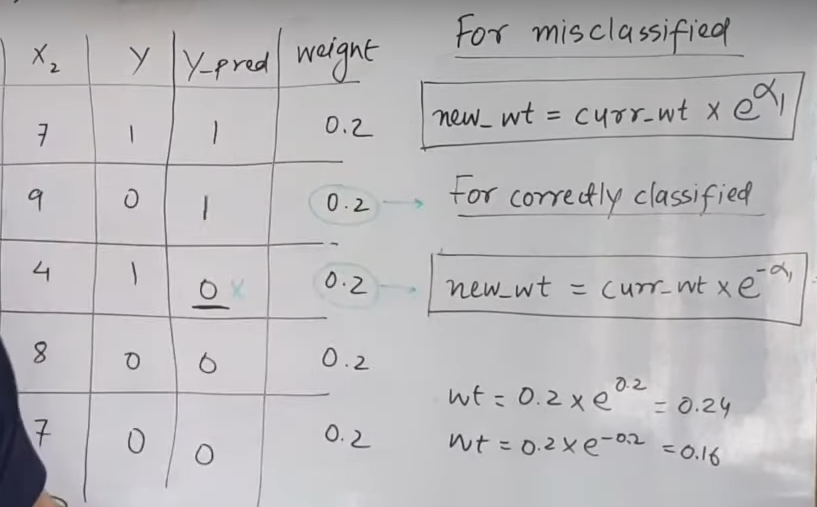 X₂ Y Y_pred weight
7 1 1 0.2
9 0 1 0.2
4 1 0 x 0.2
8 0 0 0.2
7 0 0 0.2
For misclassified
new_wt = curr_wt x e^α₁
For correctly classified
new_wt = curr_wt x e^-α₁
wt = 0.2 x e^0.2 = 0.24
wt = 0.2 x e^-0.2 = 0.16